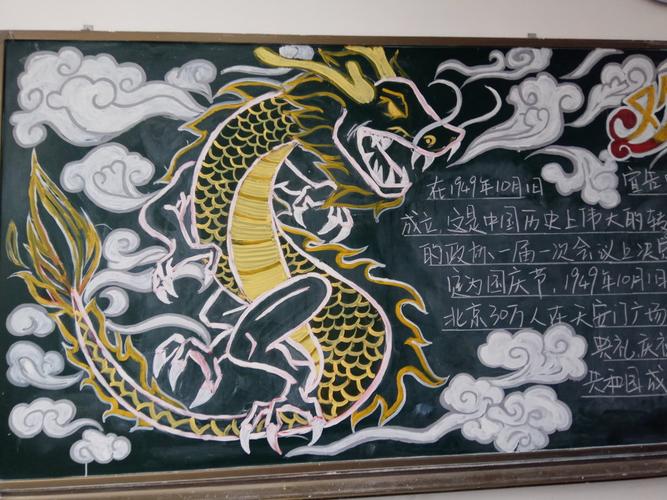 在1949年10月1日 宣告
成立,这是中国历史上伟大的转
的政协、一届一次会议上决
定为国庆节,1949年10月1日
北京30万人在天安门广场
典礼,庆祝
共和国成